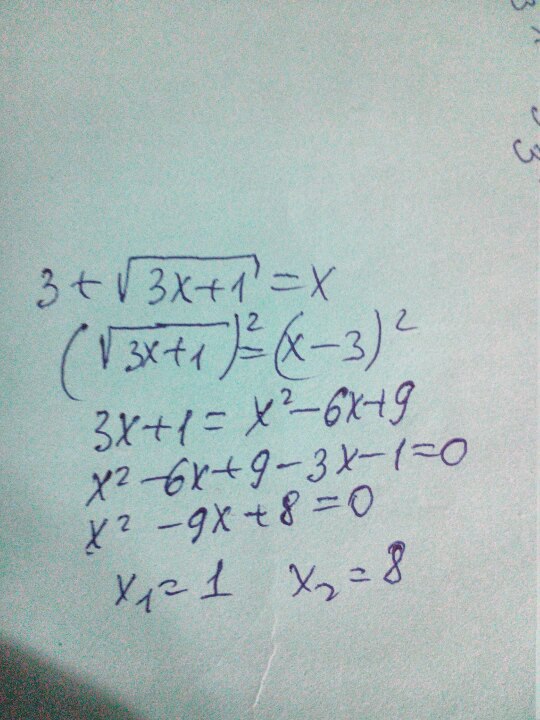 3 + √(3x+1) = x
(√(3x+1))² = (x-3)²
3x+1 = x²-6x+9
x²-6x+9-3x-1=0
x² -9x+8=0
x₁=1 x₂=8
3